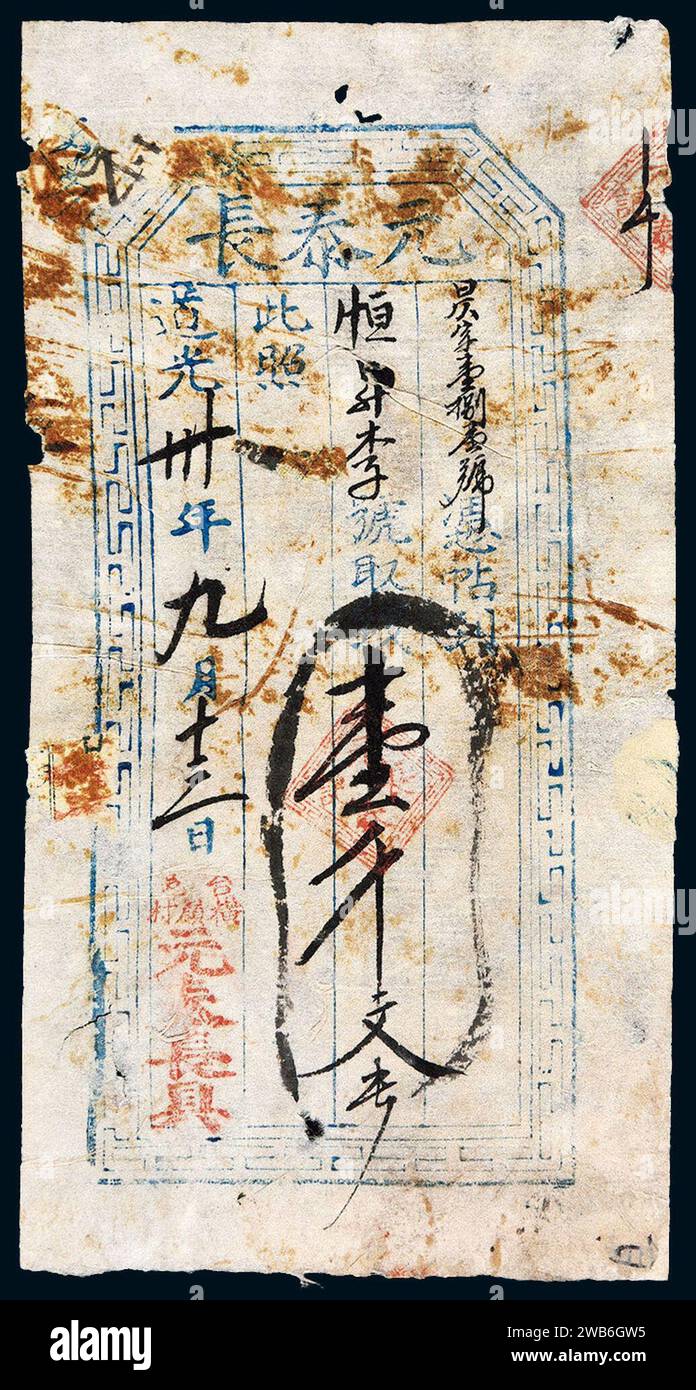 元泰長
字壹捌壹號憑帖
恒昇李號取
壹千文
此照
道光卅年九月十三日
元泰長具
alamy
Image ID: 2WB6GW5
www.alamy.com